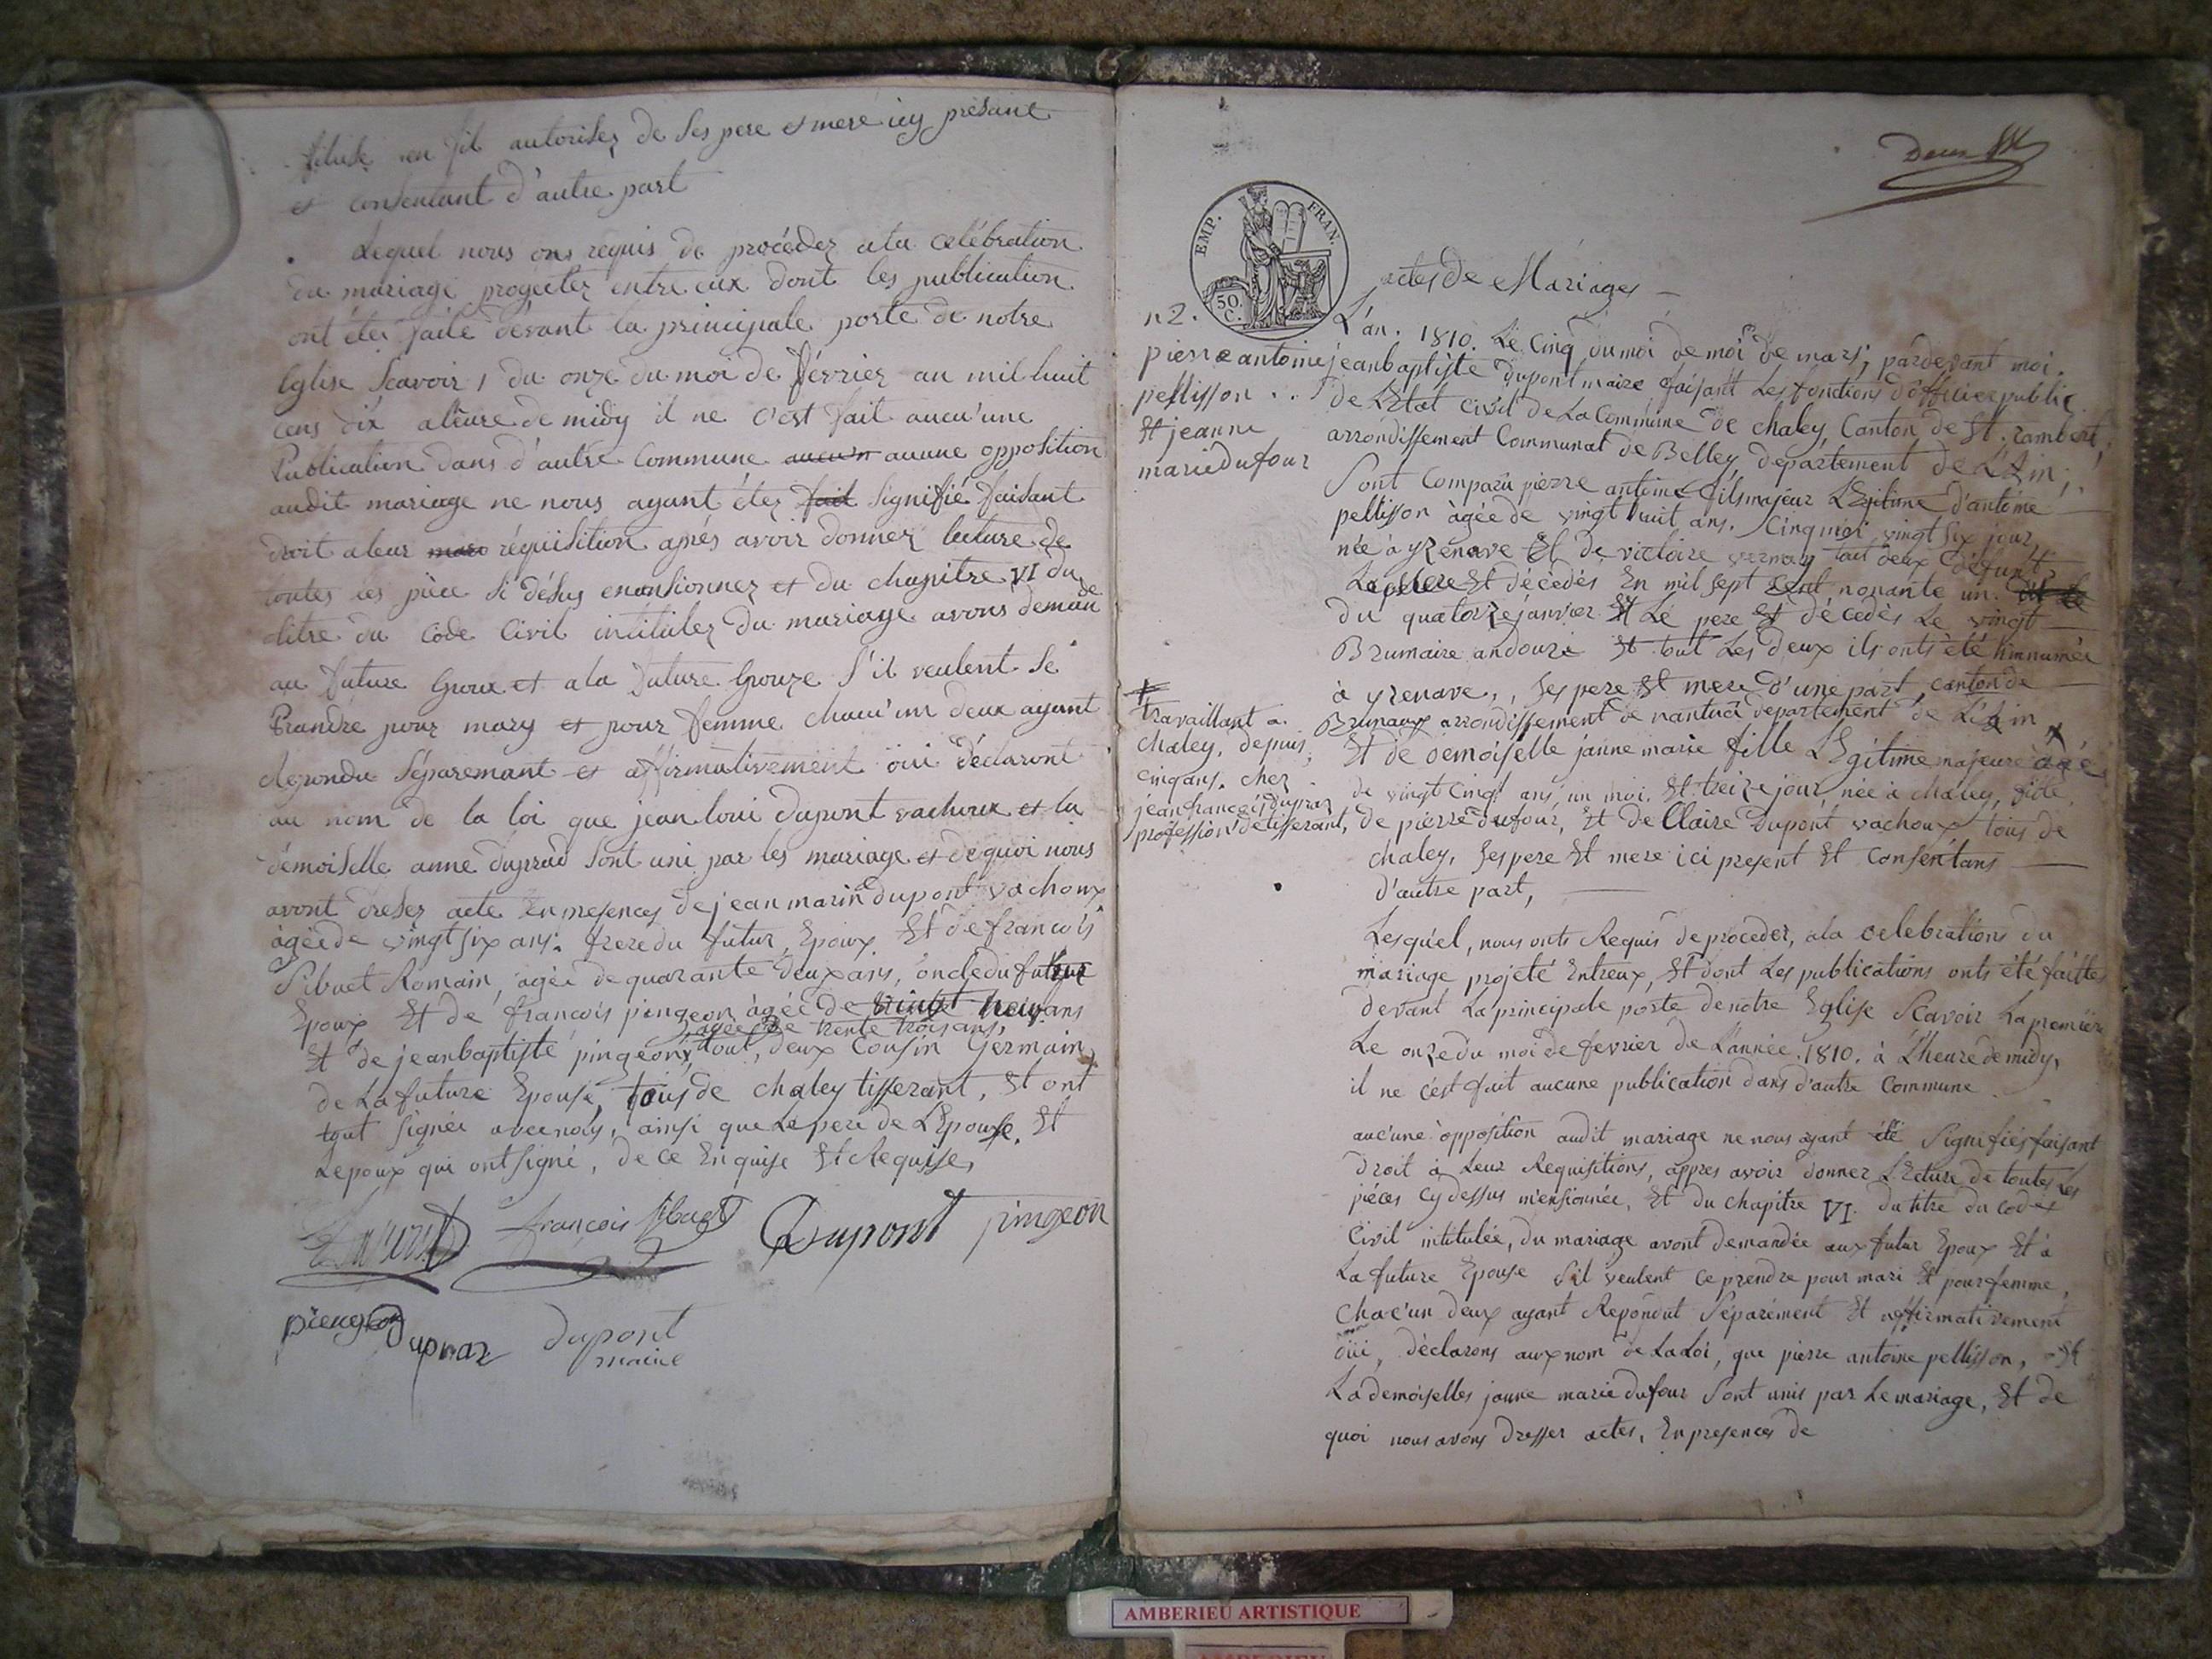 filuse en fil autorisez de ses pere et mere icy présant
et consentant d'autre part
Lequel nous ons requis de procédez a la celébration
du mariage progectez entre eux dont les publication
ont étez faite devant la principale porte de notre
Eglise Scavoir, du onze du moi de février an mil huit
cens dix aleure de midy il ne c'est fait aucu'une
Publication dans d'autre Commune aucun aucune opposition
audit mariage ne nous ayant étez fait signifié faisant
droit aleur réquisition aprés avoir donnez lecture de
toutes les pièce si désus enonsionnez et du chapitre VI du
titre du Code Civil intitulez du mariage avons demandé
au future Epoux et a la future Epouze s'il veulent se
Prandre pour mary et pour femme chacu'un deux ayant
repondu séparemant et affirmativement oui déclaront
au nom de la loi que jean loui dupont vachoux et la
demoiselle anne dupraz sont uni par les mariage et de quoi nous
avont dresez acte En presences de jean marin dupont vachoux
àgèe de vingt six ans. frere du futur Epoux Et de francois
Sibuet Romain, àgée de quarante deux ans, oncle du futur
Epoux Et de francois pingeon àgèe de vingt neuf ans
agèe de trente trois ans,
Et de jeanbaptiste pingeon, tout, deux Cousin Germain,
de La future Epouse, tous de chaley tisserant, Et ont
tout signée avec nous, ainsi que Le pere de L'Epouse, Et
Lepoux qui ont signé, de ce Enquise Et Requise,
francois sibuet
Dupont
pingeon
piengeon
Dupraz
dupont
maire
Deux
EMP. FRAN.
50. C.
actes de Màriages
n 2.
pierre antoine
pellisson ..
Et jeanne
marie dufour
L'an. 1810. Le Cinq du moi de moi de mars, pardevant moi.
jean baptiste dupont maire faisant Les fonctions d'officier public
de L'Etat Civil de La Commune de chaley Canton de St. rambert,
arrondissement Communal de Belley departement de L'Ain;
Sont Comparu pierre antoine fils majeur LEgitime d'antoine
pellisson àgèe de vingt huit ans. Cinq moi vingt six jour,
née à yzenave Et de victoire vernay tout deux défunt,
La mere Et dècèdés En mil sept cent nonante un.
du quatorze janvier Et Le pere Et dècedès Le vingt
Brumaire an douze Et tout Les deux ils onts été hinnumée
à yzenave,, ses pere Et mere d'une part, canton de
Brunaux arrondissement de nantua departement de L'Ain
travaillant a
chaley, depuis,
cinq ans. chez
jean francois dupraz
profession de tisserant,
Et de demoiselle janne marie fille LEgitime majeure àgé
de vingt Cinq ans un moi. Et treize jour née à chaley, fille
de pierre dufour, Et de Claire Dupont vachoux tous de
chaley, ses pere Et mere ici present Et Consentans
d'autre part,
Lesquel, nous onts Requis de proceder, a la celebrations du
mariage projeté Entreux, Et dont Les publications onts été faittes
devant La principale porte de notre Eglise Scavoir La premiere
Le onze du moi de fevrier de L'année. 1810. à L'heure de midy,
il ne c'est fait aucune publication dans d'autre Commune
auc'une opposition audit mariage ne nous ayant été Signifiés faisant
droit à Leur Requisitions, appres avoir donner LEcture de toutes Les
piéces cy dessus mensionnée, Et du chapitre VI. du titre du Codes
Civil intitulée, du mariage avont demandée aux futur Epoux Et à
La future Epouse s'il veulent ce prendre pour mari Et pour femme,
Chac'un deux ayant Repondut Séparément Et affirmativement
oui, dèclarons aux nom de La Loi, que pierre antoine pellisson, Et
La demoiselles janne marie dufour Sont unis par Le mariage, Et de
quoi nous avons dresser actes, En presences de
AMBERIEU ARTISTIQUE
AMBERIEU